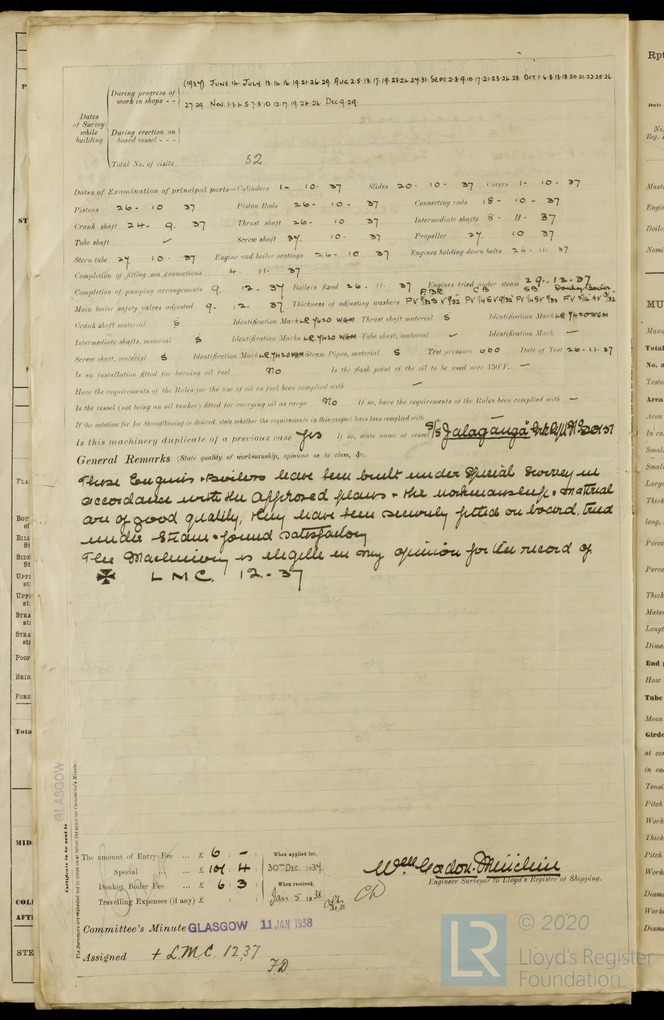 (1937) JUNE 14 JULY 13.14.16.19.21.26.29. AUG 2.5.13.17.19.23.26.27.31 SEPT 2.8.9.10.17.21.23.26.28 OCT 1.6.8.13.18.20.21.22.25.26
During progress of work in shops - -
27.29. NOV. 1.3.4.5.7.8.10.12.17.19.24.26 DEC 9.29.
Dates of Survey while building
During erection on board vessel - - -
Total No. of visits 52
Dates of Examination of principal parts—Cylinders 1- 10. 37 Slides 20. 10. 37 Covers 1- 10. 37
Pistons 26. 10 37 Piston Rods 26. 10. 37 Connecting rods 18. 10. 37
Crank shaft 24. 9. 37 Thrust shaft 26. 10 37 Intermediate shafts 8. 11. 37
Tube shaft ✓ Screw shaft 27. 10. 37 Propeller 27. 10 37
Stern tube 27 10. 37 Engine and boiler seatings 26. 10 37 Engines holding down bolts 26. 11. 37
Completion of fitting sea connections 4. 11. 37
Completion of pumping arrangements 9. 12. 37 Boilers fixed 26. 11. 37 Engines tried under steam 29. 12. 37
Main boiler safety valves adjusted 9. 12. 37 Thickness of adjusting washers
Crank shaft material S Identification Mark LR 7420 WGM Thrust shaft material S Identification Mark LR 7420 WGM
Intermediate shafts, material S Identification Marks LR 7420 WGM Tube shaft, material ✓ Identification Mark —
Screw shaft, material S Identification Mark LR 7420 WGM Steam Pipes, material S Test pressure 600 Date of Test 26.11.37
Is an installation fitted for burning oil fuel No Is the flash point of the oil to be used over 150°F. —
Have the requirements of the Rules for the use of oil as fuel been complied with —
Is the vessel (not being an oil tanker) fitted for carrying oil as cargo No If so, have the requirements of the Rules been complied with —
If the notation for Ice Strengthening is desired, state whether the requirements in this respect have been complied with
Is this machinery duplicate of a previous case Yes If so, state name of vessel S/S Jalaganga
General Remarks (State quality of workmanship, opinions as to class, &c.
These Engines & Boilers have been built under Special Survey in
accordance with the approved plans & the workmanship & material
are of good quality, they have been securely fitted on board, tried
under Steam & found satisfactory
The Machinery is eligible in my opinion for the record of
✠ L M C. 12.-37
GLASGOW
Certificate to be sent to
The amount of Entry Fee ... £ 6 : - : When applied for,
Special ... £ 104 : 4 : 30th DEC. 1937
Donkey Boiler Fee ... £ 6 : 3 : When received,
Travelling Expenses (if any) £ : : Jan 5 1938
Wm Gordon Minchin
Engineer Surveyor to Lloyd's Register of Shipping.
Committee's Minute GLASGOW 11 JAN 1938
Assigned + L M C 12.37
F.D
© 2020
Lloyd's Register
Foundation
LR